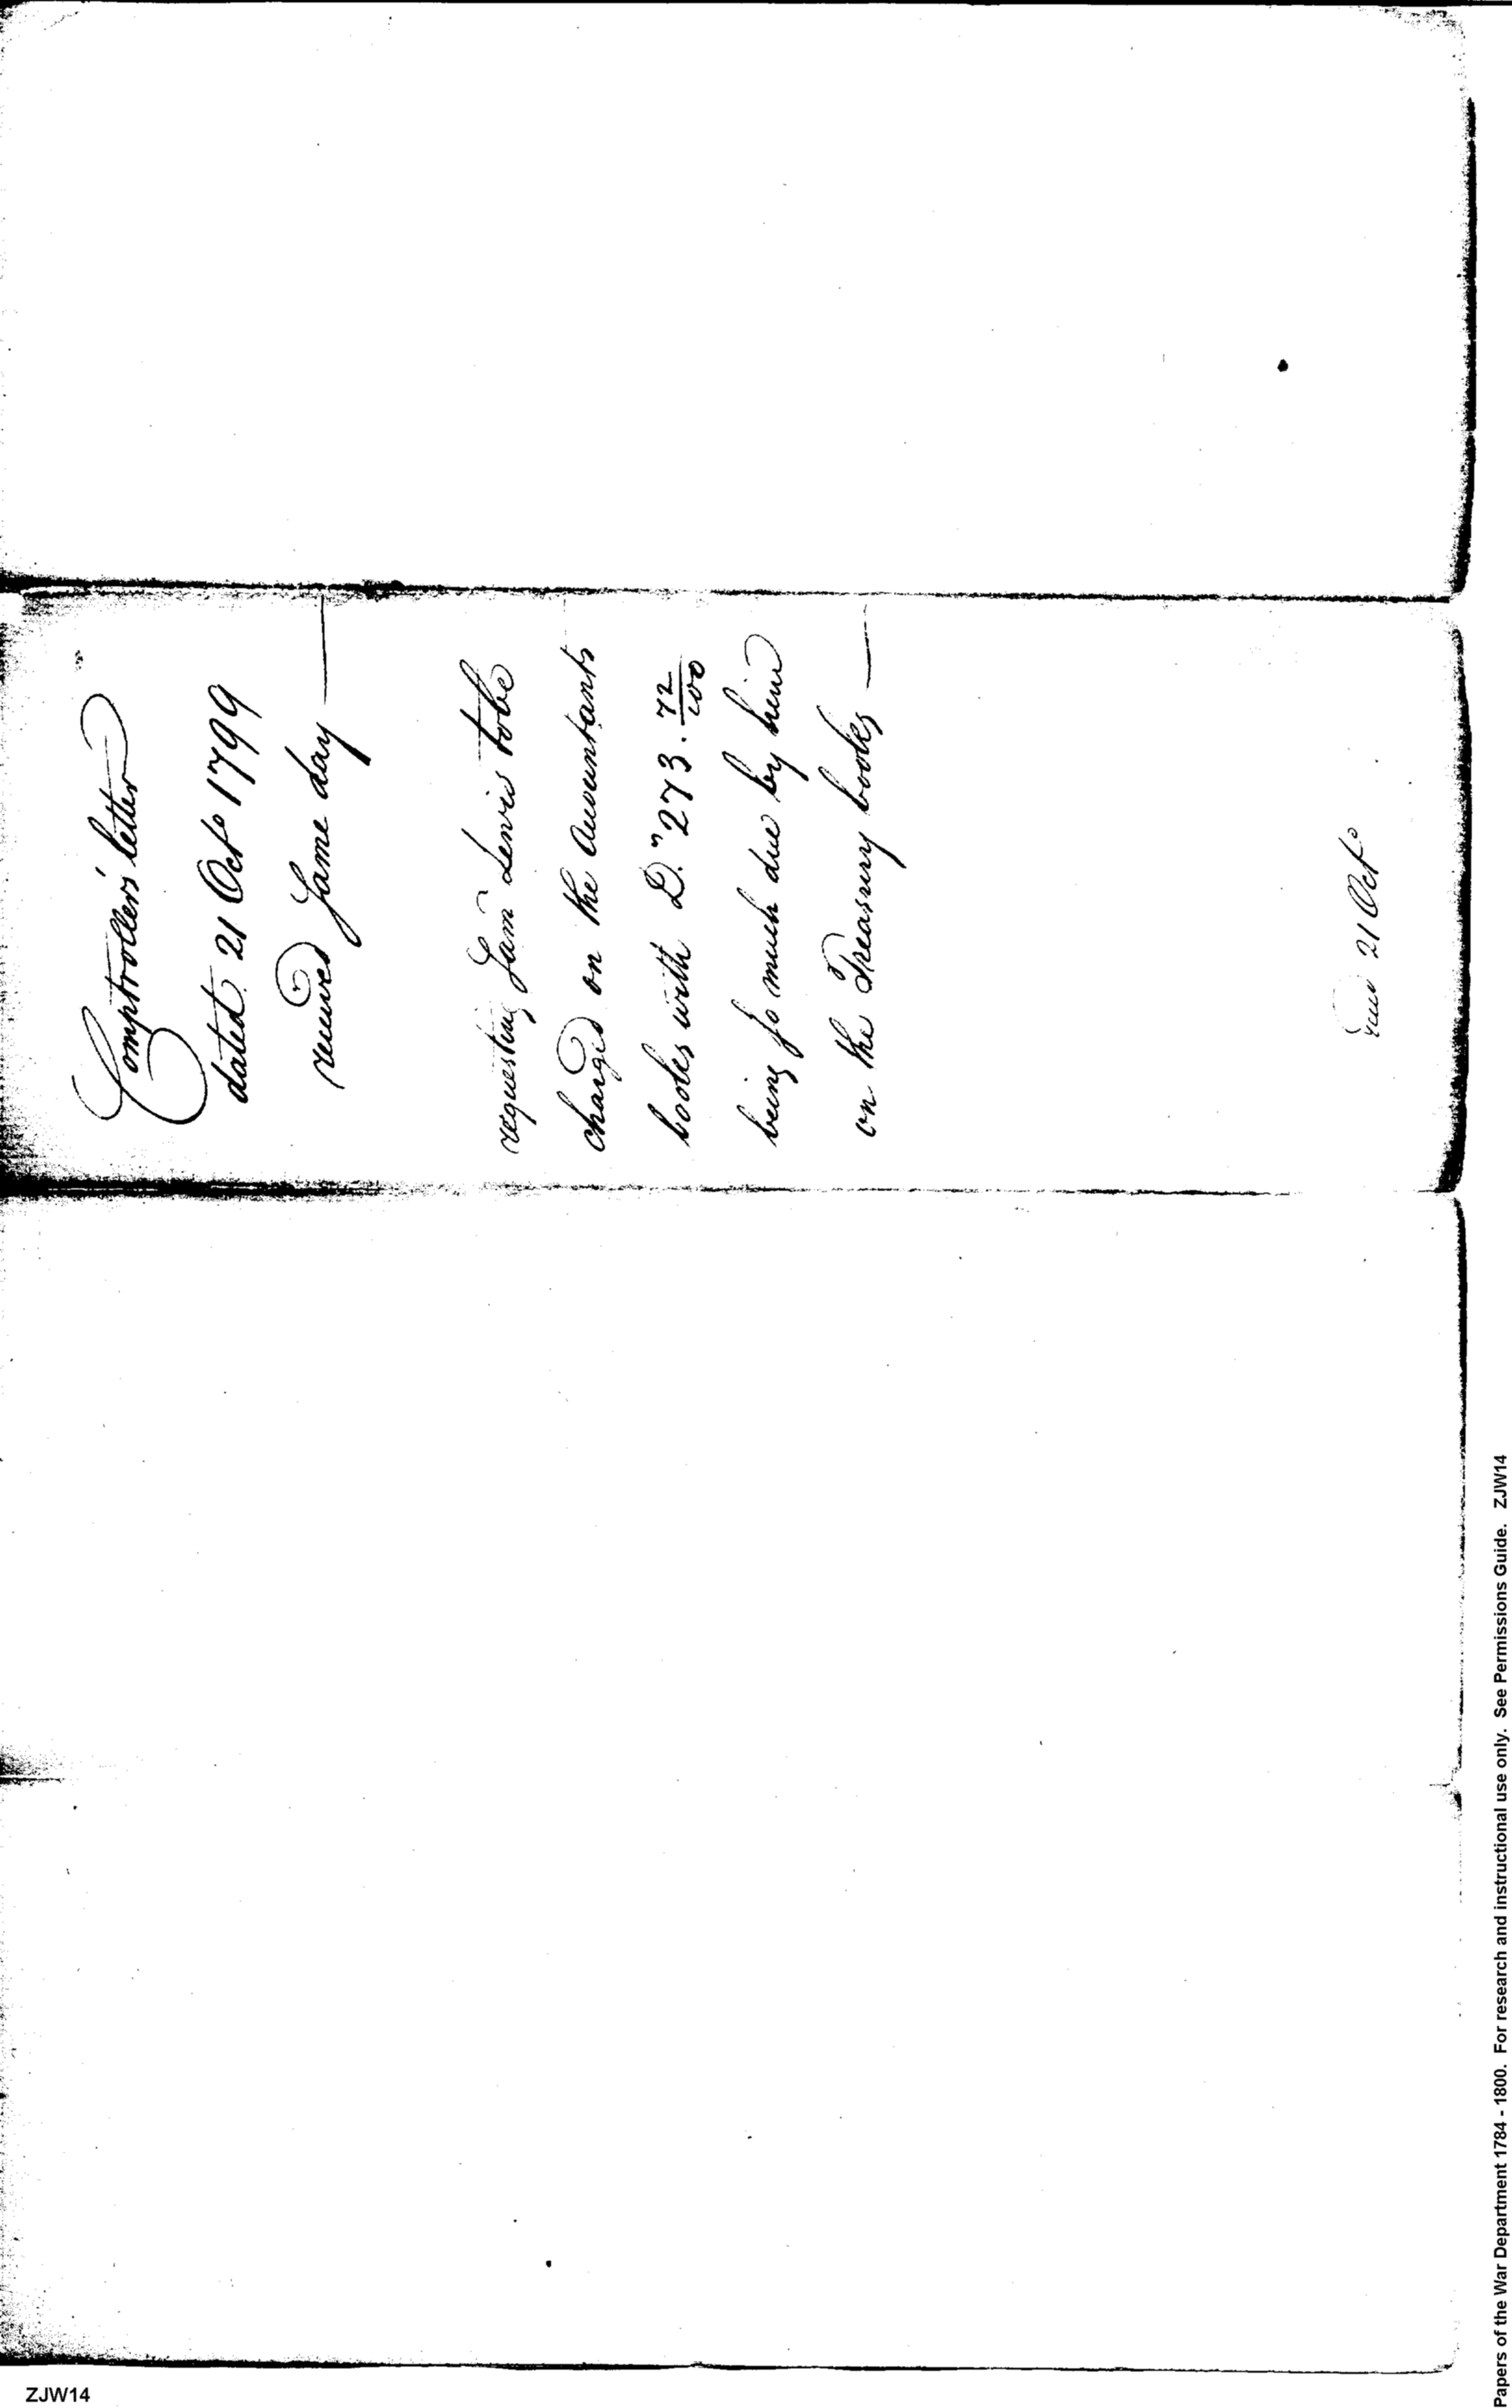 Comptrollers' letter
dated 21 Octo 1799
received same day —
requesting Sam Lewis to be
charged on the Accountants
books with D." 273. 72/100
being so much due by him
on the Treasury books —
21 Octo
Papers of the War Department 1784 - 1800. For research and instructional use only. See Permissions Guide. ZJW14
ZJW14